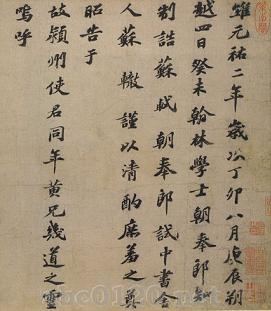 維元祐二年歲次丁卯八月庚辰朔
越四日癸未翰林學士朝奉郎知
制誥蘇軾朝奉郎試中書舍
人蘇轍謹以清酌庶羞之奠
昭告于
故潁州使君同年黃兄幾道之靈
嗚呼